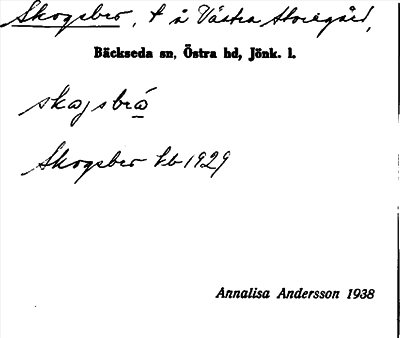 Skogsbro, t å Västra Storegård,
Bäckseda sn, Östra hd, Jönk. l.
skogsbro
Skogsbro kb 1929
Annalisa Andersson 1938